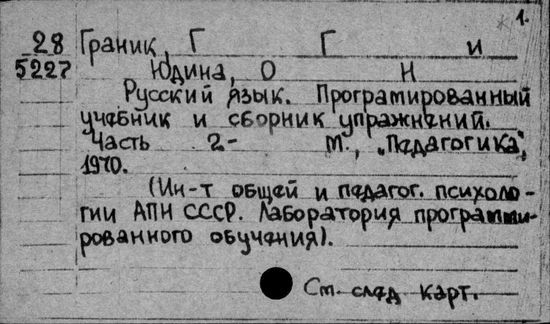 1.
28 Граник, Г Г и
5227 Юдина, О Н
Русский язык. Програмированный
учебник и сборник упражнений.
Часть 2- М., "Педагогика",
1970.
(Ин-т общей и педагог. психоло-
гии АПН СССР. Лаборатория программи-
рованного обучения).
См. след карт.